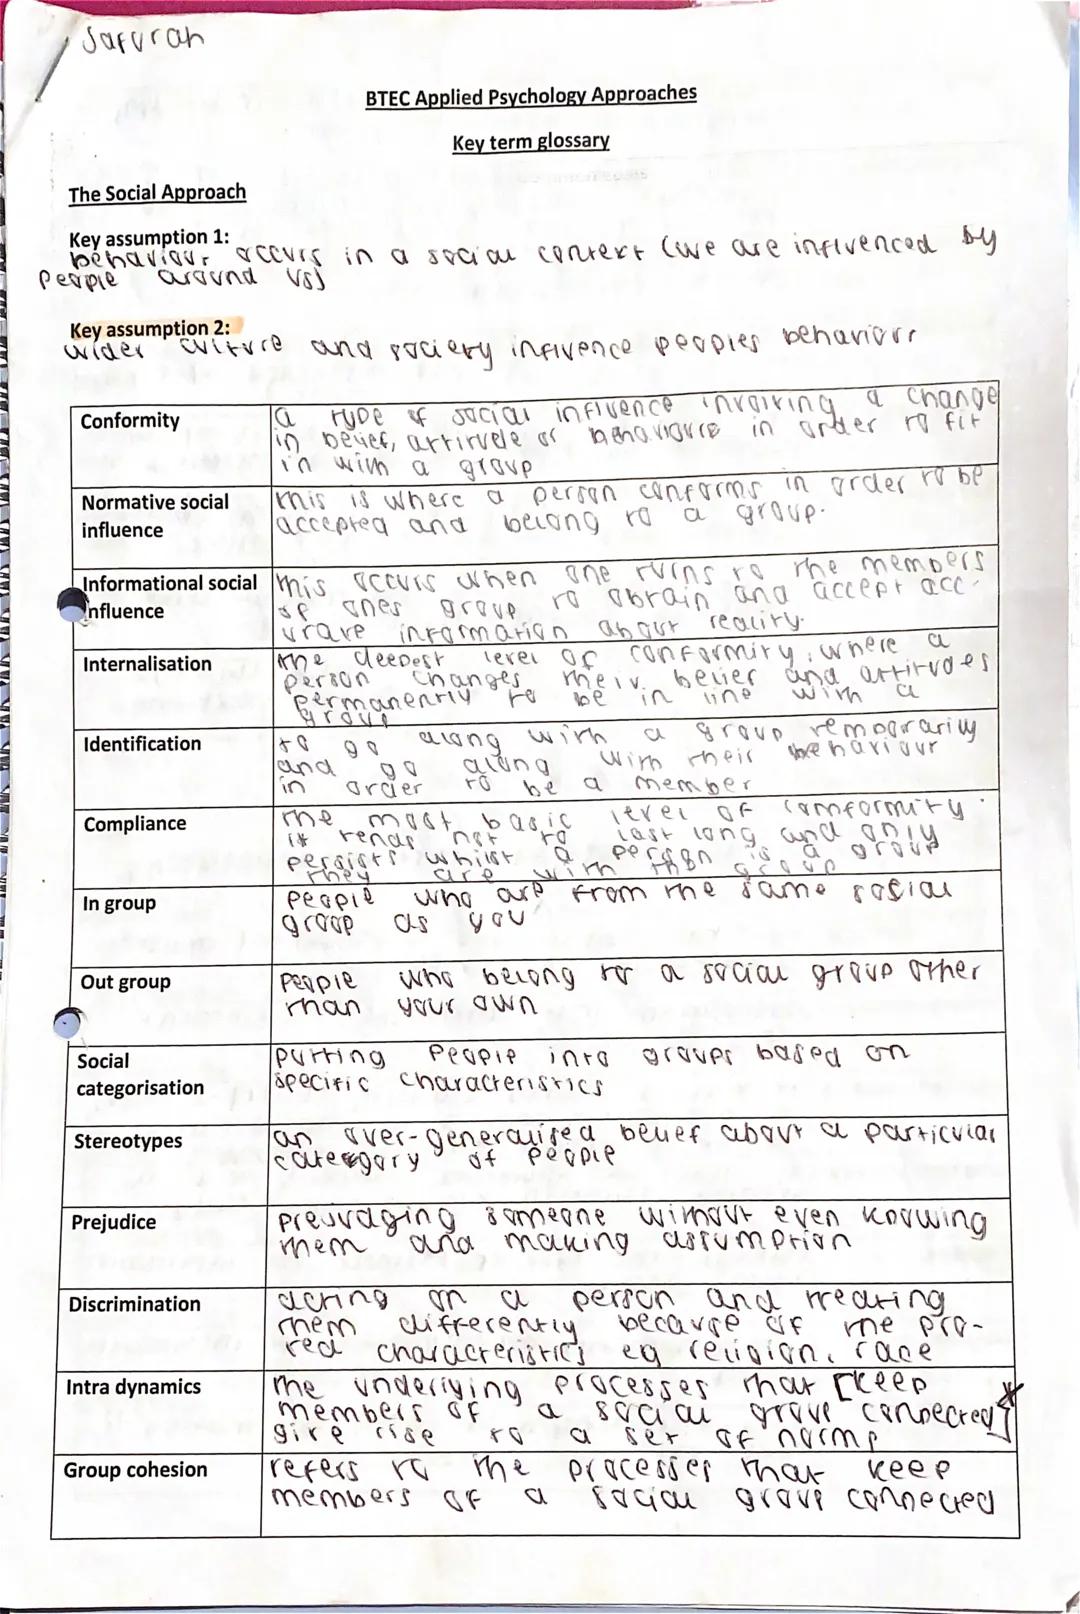 Safurah
BTEC Applied Psychology Approaches
Key term glossary
The Social Approach
Key assumption 1:
behaviour occurs in a social context (we are influenced by
people around us)
Key assumption 2:
wider culture and society influence peoples behaviour
Conformity
a type of social influence involving a change
in belief, attitude or behaviour in order to fit
in with a group
Normative social
influence
this is where a person conforms in order to be
accepted and belong to a group.
Informational social
influence
this occurs when one turns to the members
of ones group to obtain and accept acc-
urate information about reality.
Internalisation
the deepest level of conformity, where a
person changes their belief and attitudes
permanently to be in line with a
group
Identification
to go along with a group temporarily
and go along with their behaviour
in order to be a member
Compliance
the most basic level of comformity.
it tends not to last long and only
persists whilst a person is a group
they are with the group
In group
people who are from the same social
group as you
Out group
people who belong to a social group other
than your own
Social
categorisation
putting people into groups based on
specific characteristics
Stereotypes
an over-generalised belief about a particular
category of people
Prejudice
prejudging someone without even knowing
them and making assumption
Discrimination
acting on a person and treating
them differently because of the pro-
ted characteristics eg religion, race
Intra dynamics
the underlying processes that [keep
members of a social group connected]*
give rise to a set of norms
Group cohesion
refers to the processes that keep
members of a social group connected